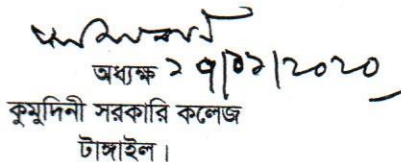 অধ্যক্ষ ২৭/০১/২০২০
কুমুদিনী সরকারি কলেজ
টাঙ্গাইল।